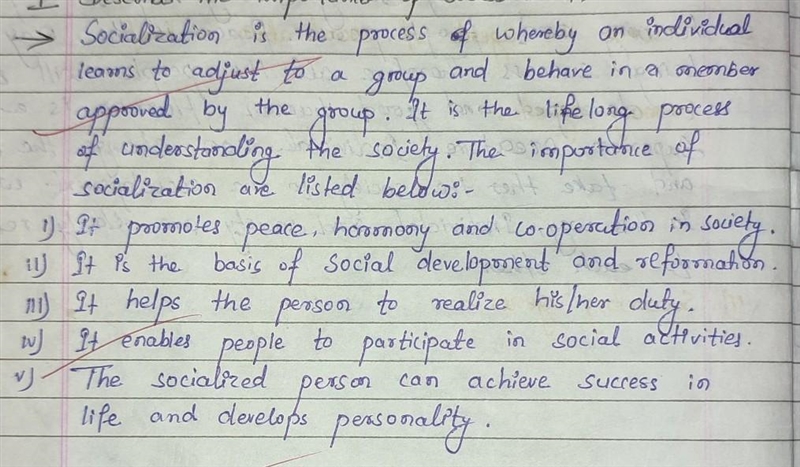 → Socialization is the process of whereby an individual
learns to adjust to a group and behave in a member
approved by the group. It is the lifelong process
of understanding the society. The importance of
socialization are listed below:-
i) It promotes peace, harmony and co-operation in society.
ii) It is the basis of social development and reformation.
iii) It helps the person to realize his/her duty.
iv) It enables people to participate in social activities.
v) The socialized person can achieve success in
life and develops personality.